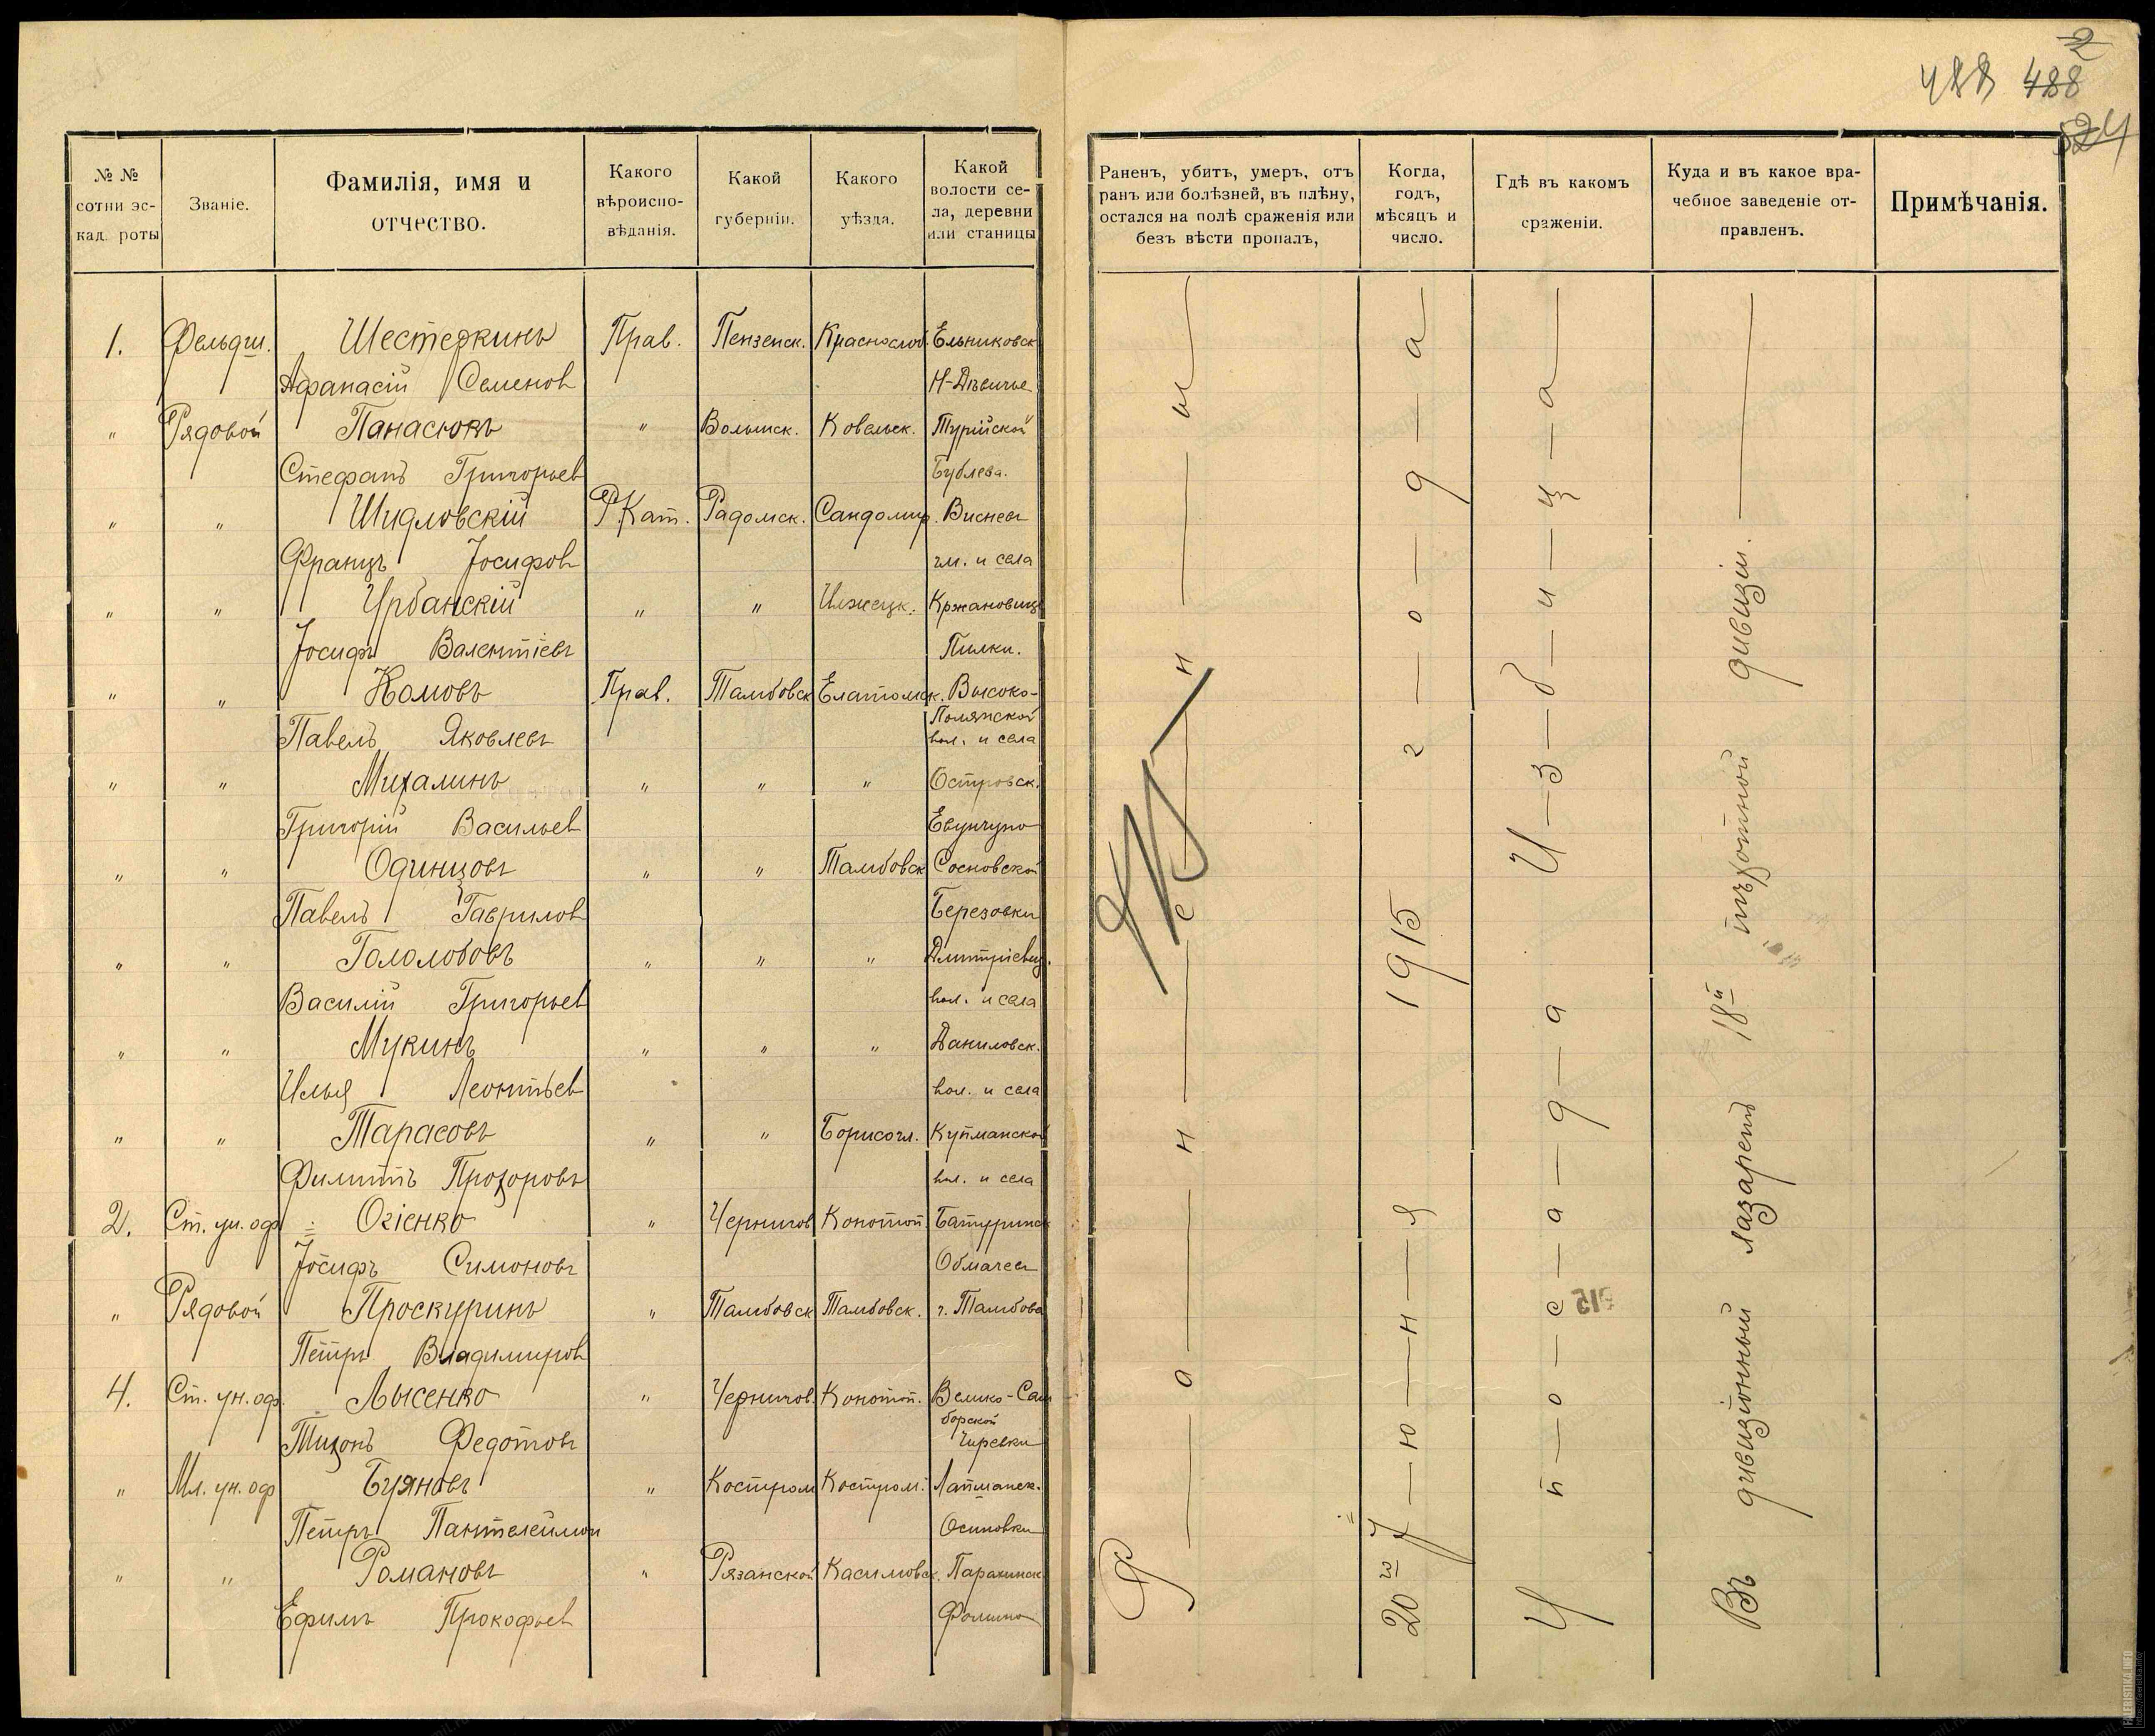 488 488
2
524
№ № сотни эскад. роты
Званіе.
Фамилія, имя и отчество.
Какого вѣроисповѣданія.
Какой губерніи.
Какого уѣзда.
Какой волости села, деревни или станицы
Раненъ, убитъ, умеръ, отъ ранъ или болѣзней, въ плѣну, остался на полѣ сраженія или безъ вѣсти пропалъ,
Когда, годъ, мѣсяцъ и число.
Гдѣ въ какомъ сраженіи.
Куда и въ какое врачебное заведеніе отправленъ.
Примѣчанія.
1. Фельдш. Шестеркинъ Прав. Пензенск. Краснослоб. Ельниковск.
Афанасій Семенов Н-Дѣвичье
" Рядовой Панасюкъ " Волынск. Ковельск. Турійской
Стефанъ Григорьев Бублева.
" " Шидловскій Р.Кат. Радомск. Сандомир. Висмев
Францъ Іосифов гм. и села
" " Урбанскій " " Илжецк. Кржановице
Іосифъ Валентіевъ Пилки.
" " Комовъ Прав. Тамбовск Елатомск. Высоко-
Полянской
Павелъ Яковлевъ вол. и села
" " Михалинъ " " " Островск.
Григорій Васильев
" " Одинцовъ " " Тамбовск Сосновской
Павелъ Гаврилов Березовки
" " Гололобовъ " " " Дмитріевщ.
Василій Григорьев вол. и села
" " Мукинъ " " " Даниловск.
Илья Леонтьев вол. и села
" " Тарасовъ " " Борисогл.
Филиппъ Прохоровъ вол. и села
2. Ст. ун. оф. Огіенко " Чернигов Конотоп. Батуринск
Іосифъ Симоновъ Обмачев
" Рядовой Проскуринъ " Тамбовск Тамбовск. г. Тамбова
Петръ Владимиров
4. Ст. ун. оф. Лысенко " Чернигов. Конотоп. Велико-Сам
борской
Тихонъ Федотовъ Гиревки
" Мл. ун. оф Буяновъ " Костром Костром.
Петръ Пантелеймон Осиповки
" " Романовъ " Рязанской Касимовск. Парахинск.
Ефимъ Прокофьев Фомино
Р а н е н ы
20го І ю н я 1915 г о д а
У п о с а д а И з б и ц а
Въ дивизіонный лазаретъ 18й пѣхотной дивизіи.
512
FALERISTIKA.INFO